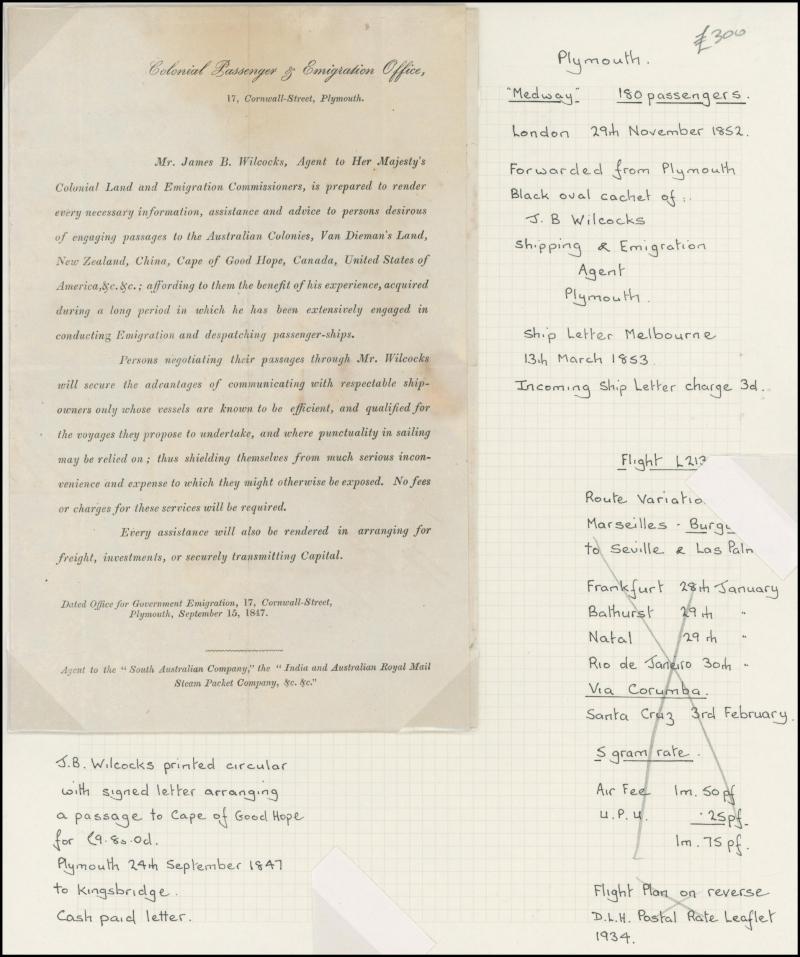 Colonial Passenger & Emigration Office,
17, Cornwall-Street, Plymouth.
Mr. James B. Wilcocks, Agent to Her Majesty's
Colonial Land and Emigration Commissioners, is prepared to render
every necessary information, assistance and advice to persons desirous
of engaging passages to the Australian Colonies, Van Dieman's Land,
New Zealand, China, Cape of Good Hope, Canada, United States of
America, &c. &c.; affording to them the benefit of his experience, acquired
during a long period in which he has been extensively engaged in
conducting Emigration and despatching passenger-ships.
Persons negotiating their passages through Mr. Wilcocks
will secure the advantages of communicating with respectable ship-
owners only whose vessels are known to be efficient, and qualified for
the voyages they propose to undertake, and where punctuality in sailing
may be relied on; thus shielding themselves from much serious incon-
venience and expense to which they might otherwise be exposed. No fees
or charges for these services will be required.
Every assistance will also be rendered in arranging for
freight, investments, or securely transmitting Capital.
Dated Office for Government Emigration, 17, Cornwall-Street,
Plymouth, September 15, 1847.
Agent to the "South Australian Company," the "India and Australian Royal Mail
Steam Packet Company, &c. &c."
J.B. Wilcocks printed circular
with signed letter arranging
a passage to Cape of Good Hope
for £9.8s.0d.
Plymouth 24th September 1847
to Kingsbridge.
Cash paid letter.
£300
Plymouth.
"Medway" 180 passengers.
London 29th November 1852.
Forwarded from Plymouth
Black oval cachet of:
J. B Wilcocks
Shipping & Emigration
Agent
Plymouth.
Ship Letter Melbourne
13th March 1853.
Incoming Ship Letter charge 3d.
Flight L213
Route Variatio
Marseilles - Burgo
to Seville & Las Palm
Frankfurt 28th January
Bathurst 29th "
Natal 29th "
Rio de Janeiro 30th "
Via Corumba.
Santa Cruz 3rd February.
5 gram rate.
Air Fee 1m. 50pf
U.P.U. .25pf.
1m. 75pf.
Flight Plan on reverse
D.L.H. Postal Rate Leaflet
1934.